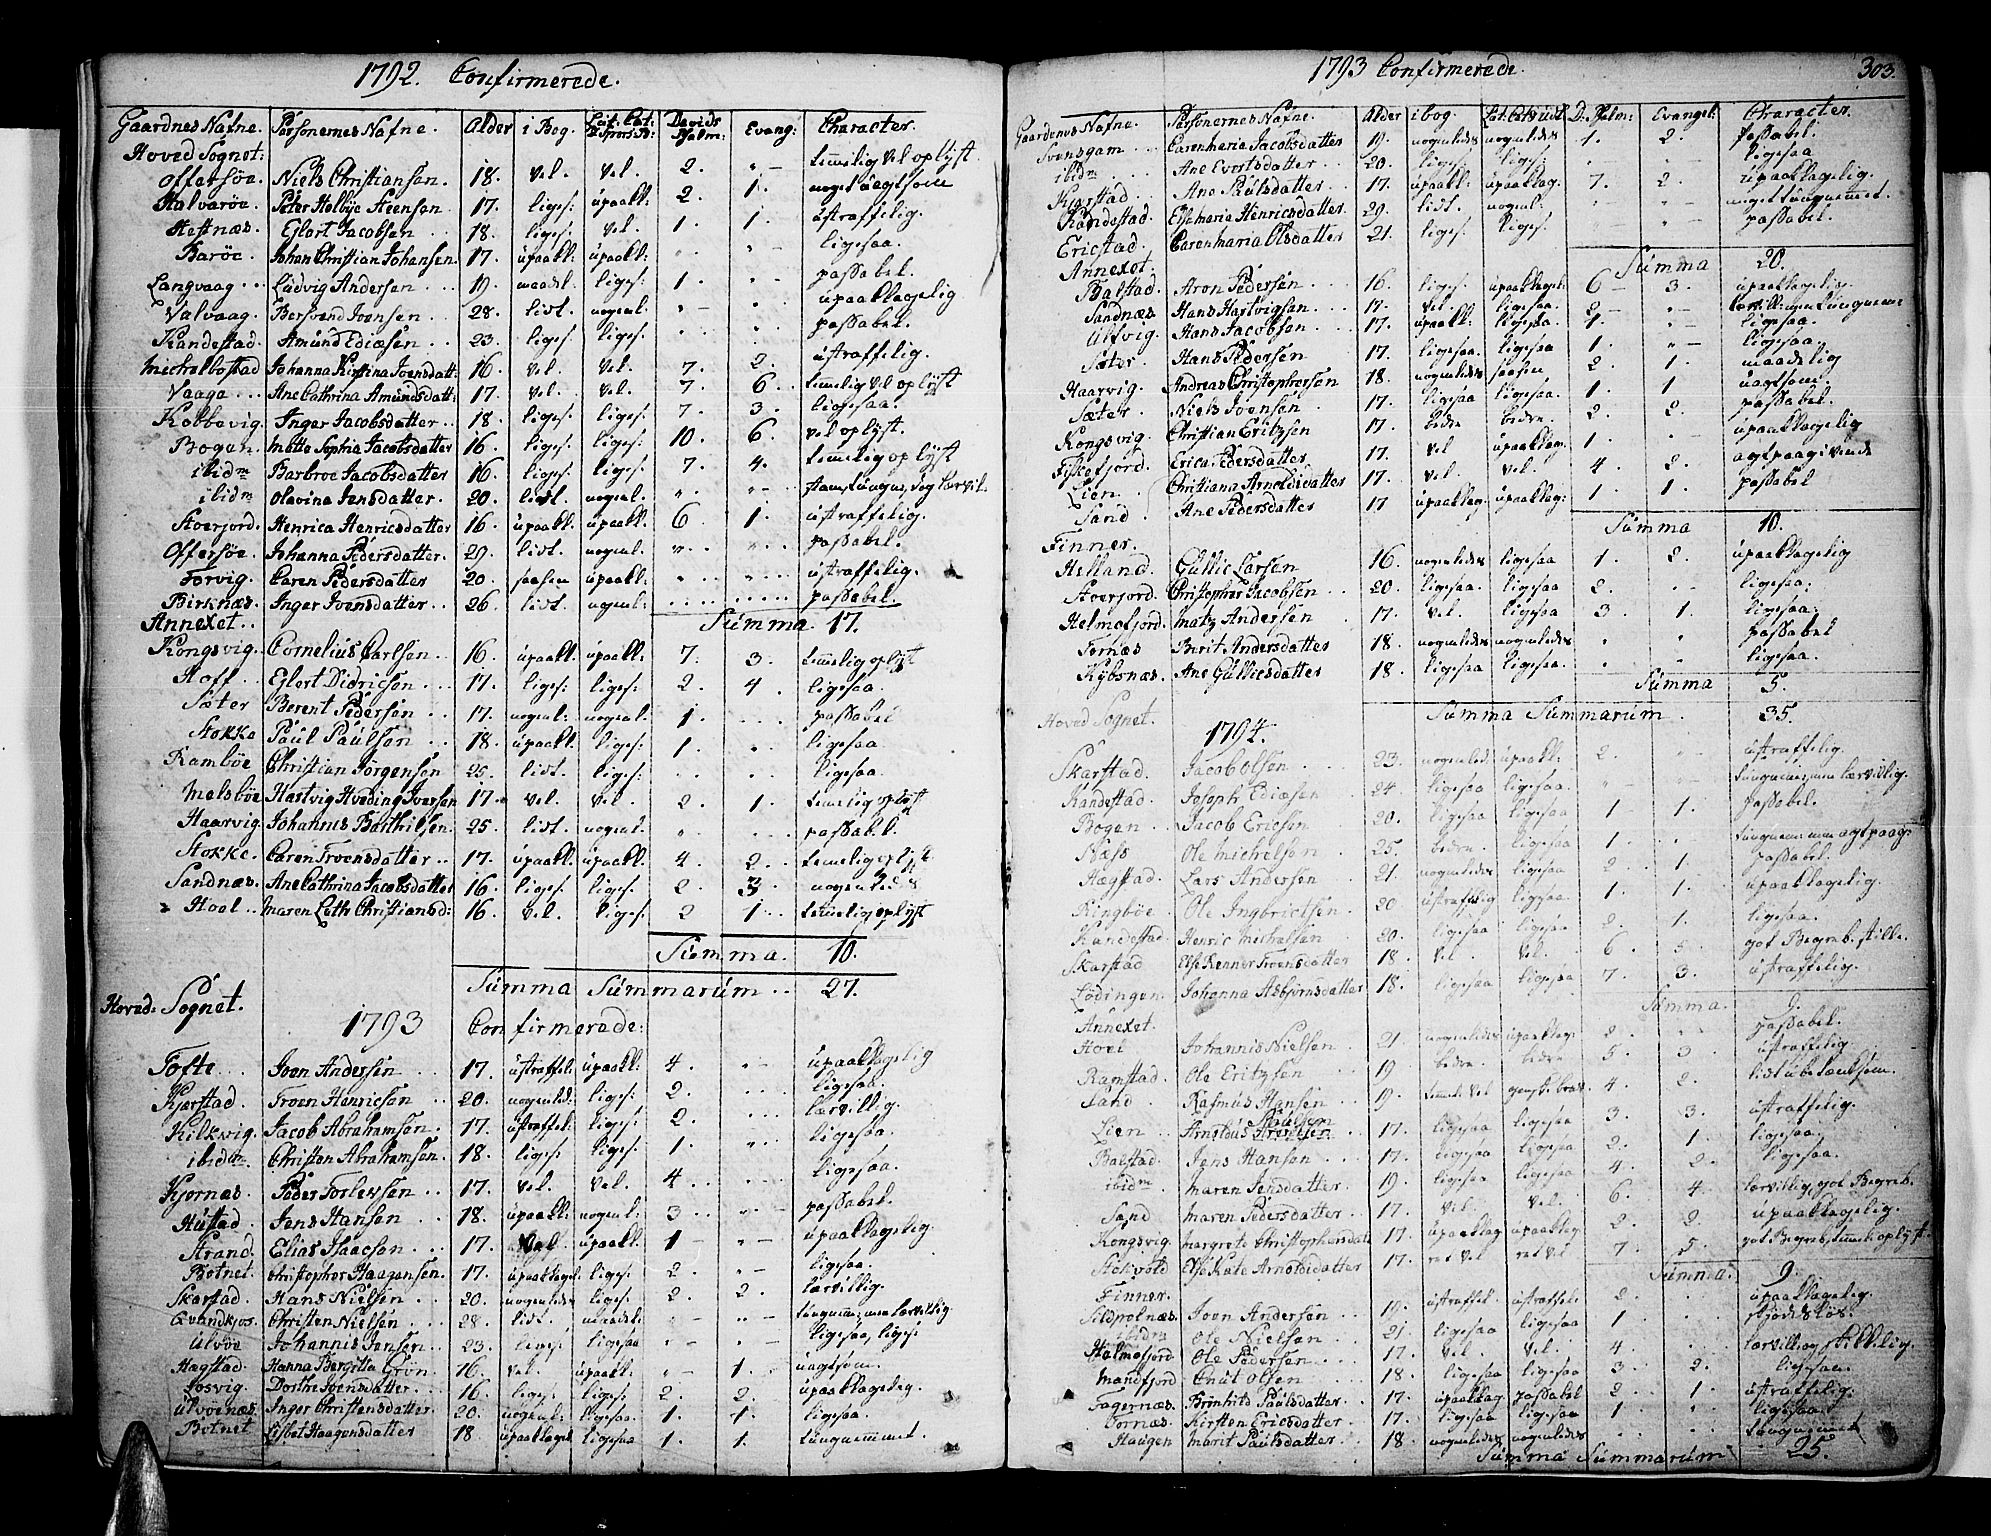 1792. Confirmerede.
Gaardnes Nafne. Personernes Nafne. Alder i Bog. David Psalm: Evang: Character.
Hoved Sognet:
Offersøe. Niels Christiansen. 18. vel. vel. 2. temmelig vel oplyst
Halvarøe. Peter Holbye Heensen. 17. liges: upaakl: 2 1. noget uagtsom
Hestnæs. Eglert Jacobsen 18. liges: vel. 1. 1. ustraffelig.
Barøe. Johan Christian Johansen. 17. upaakl: upaakl: ligesaa.
Langvaag Ludvig Andersen 19. maadel. liges: 1. passabel.
Valvaag. Bersvend Ivensen. 28. lidt. nogenl: upaaklagelig
Kandestad. Amund Ediæsen 23. liges: liges: passabel.
Michelbostad Johanna Kirstina Ivensdatt: 16. vel. vel. 7. 2. ustraffelig.
Vaaga Ane Cathrina Amundsdatt: 17. vel. vel. 7. 6. temmelig vel oplyst
Kolbevig Inger Jacobsdatter 18. liges: liges: 7. 3. ligesaa.
Bogen. Mette Sophia Jacobsdatter 16. liges: liges: 10. 6. vel oplyst.
ibidm Barbroe Jacobsdatter 16. liges: liges: 7. 4. temmelig oplyst
ibidm Olavina Jensdatter. 20. lidt. nogenl:
Stoerjord. Henrica Henricsdatter 16. upaakl. upaakl. 6. 1. ustraffelig.
Offersøe. Johanna Pedersdatter. 29. lidt. nogenl: passabel.
Forvig. Caren Pedersdatter 20. saasen upaakl. ustraffelig.
Birknæs. Inger Ivensdatter 26. lidt. nogenl: passabel.
Annexet. Summa. 17.
Kongsvig. Cornelius Carlsen 16. upaakl. upaakl. 7. 3. temmelig oplyst
Hoff Eglert Didricsen 17. liges: liges: 2. 4. ligesaa.
Sæter Berent Pedersen 17. nogenl: nogenl: 1. passabel
Stokke Paul Paulsen 18. upaakl. liges: 1. ligesaa
Ramböe Christian Jörgensen 25. lidt. liges: ligesaa.
Melsböe Hartvig Hveding Iversen 17. vel. vel. 2. 1. temmelig oplyst
Haarvig Johannis Barthilsen. 25. lidt. nogenl: passabel.
Stokke. Caren Troensdatter 17. upaakl: upaakl: 4. 2. temmelig oplyst
Sandnæs. Ane Cathrina Jacobsdatter 16. liges: liges: 2. 3. nogenledes
Hoel Maren Leth Christiansd: 16. vel. liges: 2 1. temmelig oplyst
Summa. 10.
Summa Summarum 27.
Hoved: Sognet.
1793 Confirmerede:
Tofte Joen Andersen 17. ustraffeli: upaakl: 4. upaaklagelig
Kjerstad. Troen Henricsen 20. nogenled: liges: 2. ligesaa.
Kilkvig. Jacob Abrahamsen. 17. ustraffel: liges: 2. lærvillig.
ibidm. Christen Abrahamsen. 18. liges: liges: 1. ligesaa.
Kjørnæs. Peder Torlevsen 17. vel. vel. 4. ligesaa.
Hustad. Jens Hansen 18. upaakl: nogenl: 3. passabel.
Strand. Elias Isaacsen 17. vel upaakl. 1 upaaklagelig.
Botnet. Christopher Haagensen. 17. upaaklagel liges: 2. ligesaa.
Skarstad. Hans Nielsen 20. nogenledes liges: 2. 2. lærvillig.
Qvandkjos. Christen Nielsen 28. lidt. maadel: tungnem, men lærvillig
Ulvöe Johannis Jensen 23. liges: ligesaa ligesaa, liges:
Hægstad. Hanna Bergitta Grön. 16. vel. upaakl: 1. uagtsom.
Løsvig. Dorthe Ivensdatter 16. liges: liges: 2. 2. upaaklageleg.
Ulvöenæs. Inger Christensdatter. 20. nogenl: ligesaa. 1. 1. ligesaa.
Botnet Lisbet Haagensdatter 18. upaaklagel ligesaa 1. 1. tungnemmet.
1793 Confirmerede. 303.
Gaardenes Nafne. Personernes Nafne. Alder i bog: D. Psalm: Evangel: Character.
Svensgam Caren Maria Jacobsdatter 19. nogenledes nogenledes 1. 2 passabel.
ibidm Ane Evertsdatter 20. liges: liges: ligesaa
Kjerstad Ane Paulsdatter 17. upaakl: upaaklag. 7. 2 upaaklagelig.
Kandestad. Else Maria Henricsdatter. 29. lidt. nogenl. meget tungnemmet.
Ericstad. Caren Maria Olsdatter 21. liges: liges: passabel.
Annexet. Summa 20.
Balstad. Aron Pedersen 16. liges: upaaklagel: 6 3. upaaklagelig.
Sandnæs Hans Hartvigsen 17. vel. ligesaa. 2
Ulsvig. Hans Jacobsen 17. upaakl: ligesaa. 1. ligesaa.
Sæter Hans Pedersen 17. ligesaa. ligesaa 1. ligesaa.
Haarvig. Andreas Christophersen 18. nogenledes saasen 2. 1 maadelig
Sæter Niels Ivensen 17. ligesaa ligesaa. 1 1. uagtsom.
Kongsvig Christian Eritzsen 17. bedre bedre. 2. 2. passabel.
Fiskefjord. Erica Pedersdatter 17. vel upaaklag. 1. upaaklagelig
Lien Christiana Arnoldisdatter 17. vel. vel. 4. 2. agtpaagivende
Sand Ane Pedersdatter 17 upaaklag: upaaklag: 1. 1. passabel
Summa 10.
Finner.
Helland. Gullic Larsen 16. nogenledes ligesaa 1. 2. upaaklagelig
Stoerjord. Christopher Jacobsen 20. ligesaa. ligesaa 2. ligesaa:
Helmefjord. Matz Andersen 17. vel. ligesaa 3. 1. ligesaa:
Fornæs Birit Andersdatter 18. nogenledes nogenledes passabel
Kybsnæs. Ane Gulliesdatter 18. ligesaa ligesaa. ligesaa.
Summa 5.
Hoved Sognet. Summa Summarum. 35.
1794.
Skarstad. Jacob Olsen 23. nogenled: upaakl: 2. ustraffelig.
Kandestad. Joseph Ediæsen 24. ligesaa ligesaa tungnem, men lærvillig.
Bogen Jacob Ericsen 20. ligesaa ligesaa 1 1. passabel.
Næss Ole Michelsen 25. bedre. ligesaa 1. tungnem men agtpaag:
Hægstad. Lars Andersen 21. nogenledes ligesaa 2 1. passabel.
Ringböe. Ole Ingbrictsen 20. ustraffelig ligesaa 1 1. upaaklagelig
Kandestad. Henric Michelsen 20. ligesaa ligesaa 2 1. ligesaa.
Skarstad Else Renner Troensdatter 18. vel. vel. 6. 5 got Begreb. stille.
Lødingen. Johanna Asbjørnsdatter 18. ligesaa ligesaa 7 3. ustraffelig.
Annexet. Summa. 9.
Hoel Johannis Nielsen 21. nogenledes upaaklag: 2 passabel.
Ramstad. Ole Eritzsen 19. bedre. bedre 5. 3 ustraffelig.
Sand Rasmus Hansen 19. temmel: vel 4. 2. lidt ubetænksom.
Lien Arnoldus Paulsen 17. ligesaa ligesaa 3. 3. ustraffelig.
Balstad. Jens Hansen 17. ligesaa ligesaa 2. 1. ligesaa.
ibidm Maren Jensdatter 19. ligesaa ligesaa 4. 2. ligesaa.
Sand Maren Pedersdatter 17. vel. vel. 6. 4. lærvillig, got Begreb.
Kongsvig. Margrete Christophersdatt 17. upaaklag upaaklag. 2. 2. upaaklagelig.
Else Kate Arnoldisdatter 17. ret vel ret vel 7. 5. got Begreb, temmel: oplyst.
Finner. Summa. 9.
Sildpolnæs. Joen Andersen 19. ustraffel. ustraffeli 2. upaaklagelig.
ibidm Ole Nielsen 21. ligesaa ligesaa 1.
Helmefjord Ole Pedersen 17. vel. vel. 4.
Mandfjord Cnut Olsen 18. ligesaa ligesaa 3 2. ligesaa.
Fagernæs Brönhild Paulsdatter 17. upaaklag passabel 2 1. ustraffelig.
Tornæs. Kirsten Ericsdatter 17. ligesaa ligesaa 1 ligesaa.
Haugen Marit Paulsdatter 18 nogenledes nogenledes tungnemmet
Summa Summarum 25.